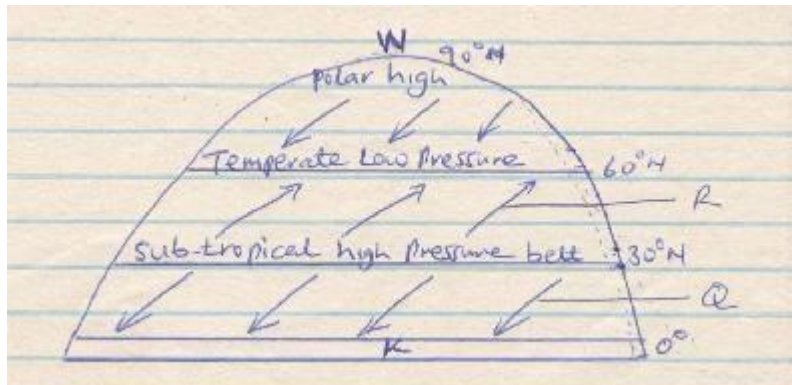 W
90°N
polar high
Temperate Low Pressure
60°N
R
Sub-tropical high pressure belt
30°N
Q
K
0°